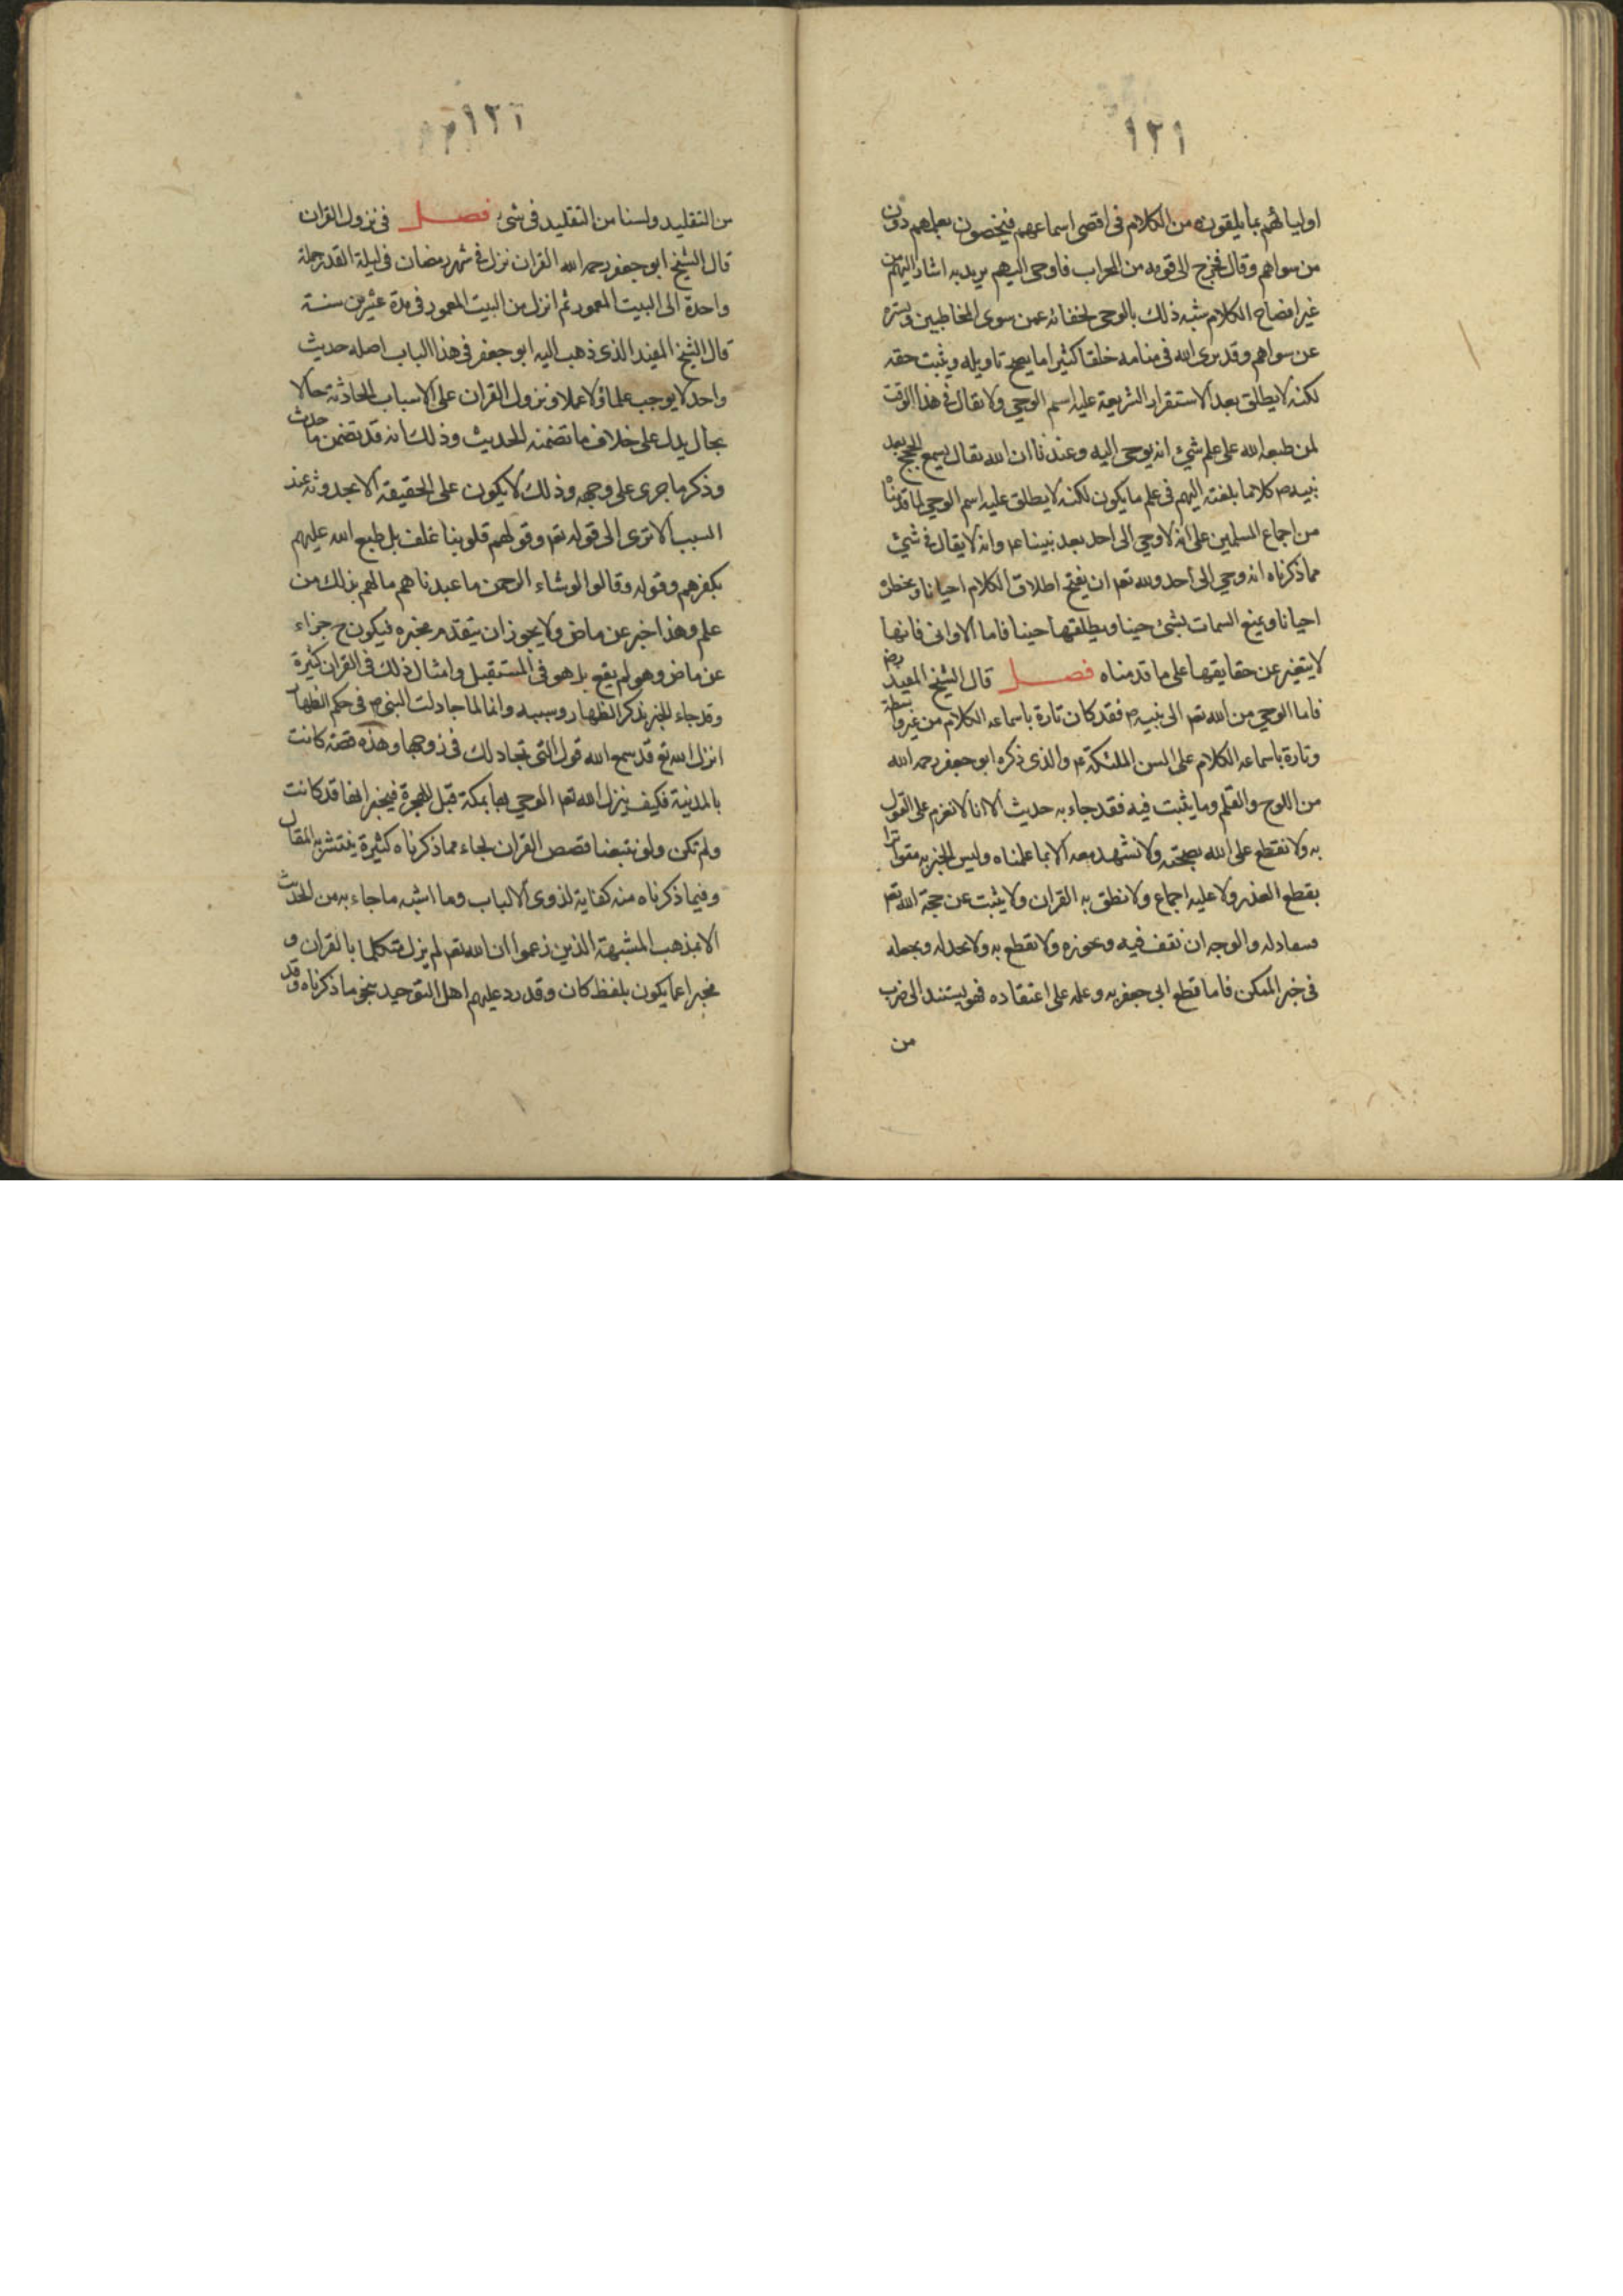 ١٢١
اوليائهم بما يلقونه من الكلام فى اقصى اسماعهم فيخصون بعلمهم دون
من سواهم وقال فخرج الى قومه من المحراب فاوحى اليهم يريد به اشار اليهم من
غير افصاح الكلام شبه ذلك بالوحى لخفائه عمن سوى المخاطبين وستره
عن سواهم وقد يرى الله فى منامه خلقا كثيرا ما يصح تاويله ويثبت حقه
لكنه لا يطلق بعد الاستقرار الشريعة عليه اسم الوحى ولا يقال فى هذا الوقت
لمن طبعه الله على علم شئ انه يوحى اليه وعندنا ان الله تعالى يسمع الحجج بعد
نبيه ص كلاما يلقنه اليهم فى علم ما يكون لكنه لا يطلق عليه اسم الوحى لما قدمنا
من اجماع المسلمين على انه لا وحى الى احد بعد نبينا ع وانه لا يقال فى شئ
مما ذكرناه انه وحى الى احد ولله تعم ان يفتح اطلاق الكلام احيانا ويحظره
احيانا ويمنع السمات بشئ حينا ويطلقها حينا فاما الاوانى فانها
لا يتغير عن حقايقها على ما قدمناه فصل قال الشيخ المفيد رض
فاما الوحى من الله تعم الى نبيه ص فقد كان تارة باسماعه الكلام من غير واسطة
وتارة باسماعه الكلام على السن الملئكة ع والذى ذكره ابو جعفر رحمه الله
من اللوح والقلم وما يثبت فيه فقد جاء به حديث الا انا لا نعزم على القول
به ولا نقطع على الله بصحته ولا نشهد معه الا بما علمناه وليس الخبر به متواترا
يقطع العذر ولا عليه اجماع ولا نطق به القران ولا يثبت عن حجة الله تعم
والوجه ان نقف فيه ونجوزه ولا نقطع به ونجعله
فى خبر الممكن فاما قطع ابى جعفر به وعلمه على اعتقاده فهو يستند الى ضرب
من
١٢٢
من التقليد ولسنا من التقليد فى شئ فصل فى نزول القران
قال الشيخ ابو جعفر رحمه الله القران نزل فى شهر رمضان فى ليلة القدر جملة
واحدة الى البيت المعمور ثم انزل من البيت المعمور فى مدة عشرين سنة
قال الشيخ المفيد الذى ذهب اليه ابو جعفر فى هذا الباب اصله حديث
واحد لا يوجب علما ولا عملا ونزول القران على الاسباب الحادثة حالا
بحال يدل على خلاف ما تضمنه الحديث وذلك انه قد تضمن ما حدث
وذكر ما جرى على وجهه وذلك لا يكون على الحقيقة الا بحدوثه عند
السبب الا ترى الى قوله تعم وقولهم قلوبنا غلف بل طبع الله عليهم
بكفرهم وقوله وقالوا لو شاء الرحمن ما عبدناهم ما لهم بذلك من
علم وهذا خبر عن ماض ولا يجوز ان يتقدم مخبره فيكون ح جزاء
عن ماض وهو لم يقع بل هو فى المستقبل وامثال ذلك فى القران كثيرة
وقد جاء الخبر بذكر الظهار وسببه وانها لما جادلت النبى ص فى حكم الظهار
انزل الله تع قد سمع الله قول التى تجادلك فى زوجها وهذه قصة كانت
بالمدينة فكيف ينزل الله تعم الوحى بها بمكة قبل الهجرة فيخبر انها قد كانت
ولم تكن ولو تتبعنا قصص القران لجاء مما ذكرناه كثيرة ينتشر به المقال
وفيما ذكرناه منه كفاية لذوى الالباب وما اشبه ما جاء به من الحديث
الا بمذهب المشبهة الذين زعموا ان الله تعم لم يزل متكلما بالقران و
مخبرا عما يكون بلفظ كان وقد رد عليهم اهل التوحيد بنحو ما ذكرناه وقد